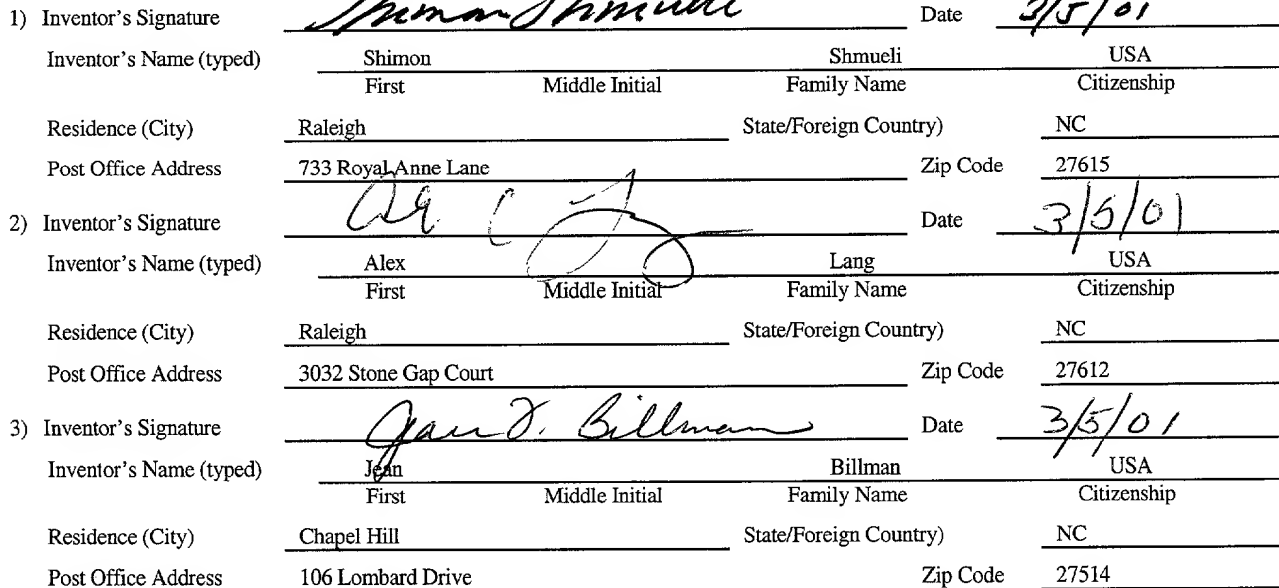 1) Inventor's Signature Shimon Shmueli Date 3/5/01
Inventor's Name (typed) Shimon Shmueli USA
First Middle Initial Family Name Citizenship
Residence (City) Raleigh State/Foreign Country) NC
Post Office Address 733 Royal Anne Lane Zip Code 27615
2) Inventor's Signature Date 3/5/01
Inventor's Name (typed) Alex Lang USA
First Middle Initial Family Name Citizenship
Residence (City) Raleigh State/Foreign Country) NC
Post Office Address 3032 Stone Gap Court Zip Code 27612
3) Inventor's Signature Billman Date 3/5/01
Inventor's Name (typed) Jean Billman USA
First Middle Initial Family Name Citizenship
Residence (City) Chapel Hill State/Foreign Country) NC
Post Office Address 106 Lombard Drive Zip Code 27514